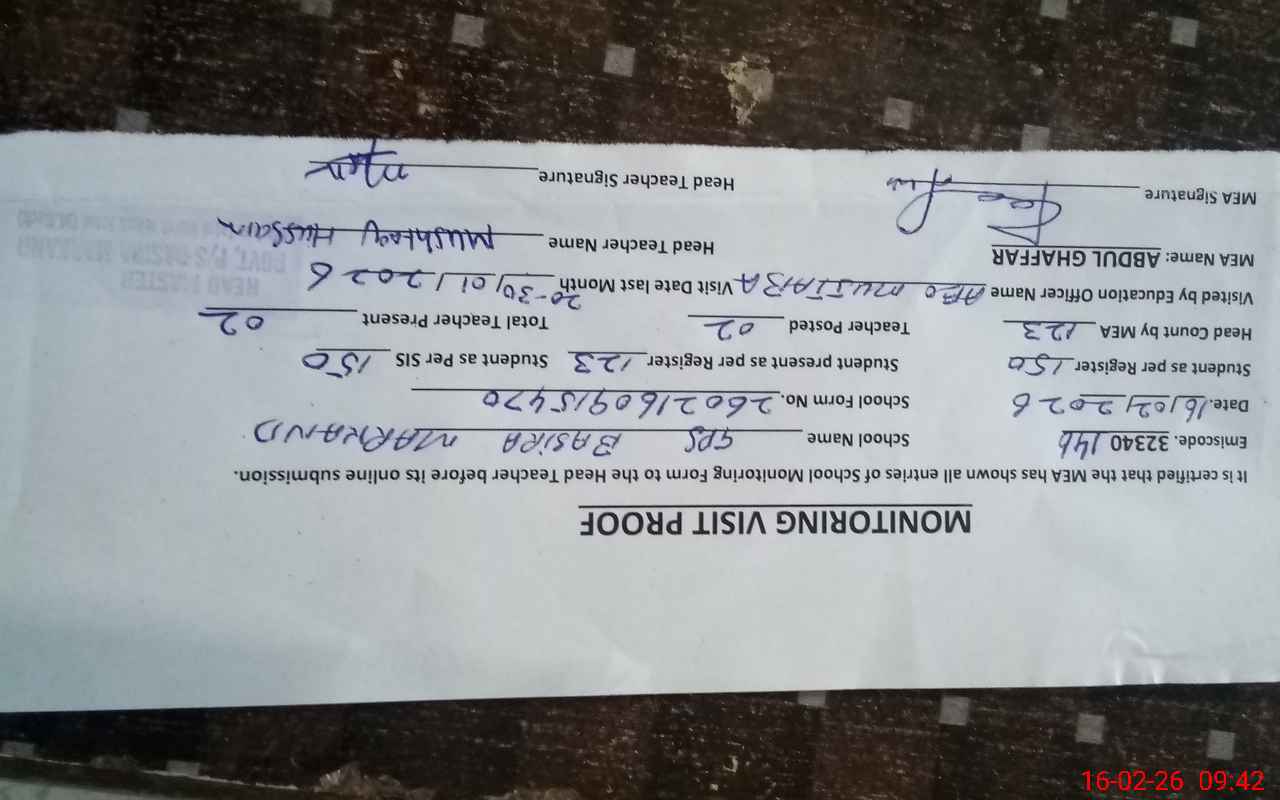 MONITORING VISIT PROOF
It is certified that the MEA has shown all entries of School Monitoring Form to the Head Teacher before its online submission.
Emiscode. 32340146 School Name GPS BASIRA MARHAND
Date. 16/02/2026 School Form No. 2602160915470
Student as per Register 150 Student present as per Register 123 Student as Per SIS 150
Head Count by MEA 123 Teacher Posted 02 Total Teacher Present 02
Visited by Education Officer Name AEO MUJTABA Visit Date last Month 20-30/01/2026
MEA Name: ABDUL GHAFFAR Head Teacher Name Mushtaq Hussain
MEA Signature Head Teacher Signature
HEAD MASTER
GOVT. P/S BASIRA
16-02-26 09:42